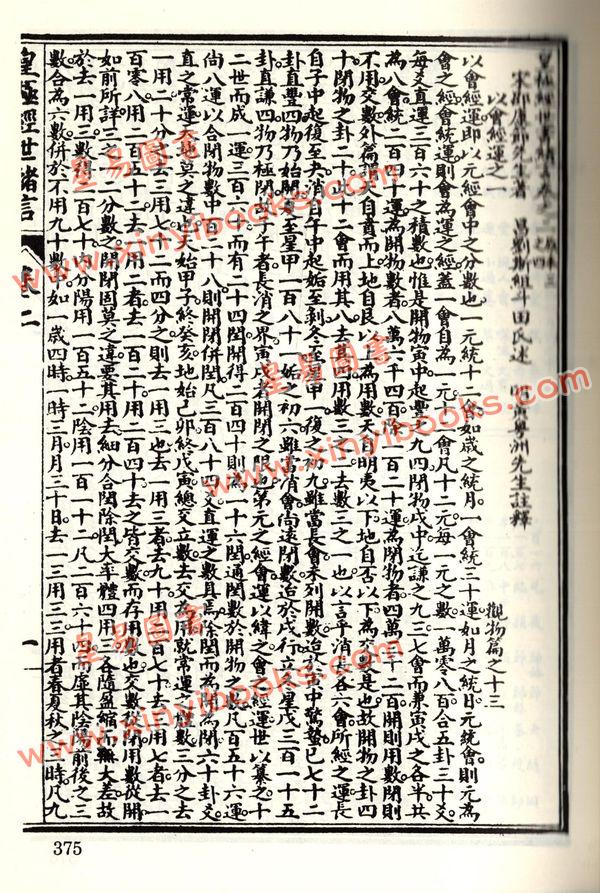 皇極經世書緒言卷之二
宋邵康節先生著 昌劉斯組斗田氏述 黃粵洲先生註釋
以會經運之一 觀物篇之十三
以會經運即以元經會中之分數也一元統十二會如歲之統月一會統三十運如月之統日元統會則元為
會之經會統運則會為運之經蓋一會自為一元十二會凡十二元每一元之數一萬零八百合五卦三十爻
每爻直運三百六十之積數也惟是開物寅中起豐之九四閉物戌中迄謙之九三七會而兼寅戌之各半共
為八會統二百四十運為開物數者八萬六千四百除一百二十運為閉物者四萬三千二百開則用數閉則
不用交數外篇謂天自賁而上地自艮以上為用數天自明夷以下地自否以下為交數是也故開物之卦四
十閉物之卦二十此十二會而用其八去其四用數三之二去數三之一也以言乎消長各六會所經之運長
自子中起復至夬消自午中起姤至剝冬至星甲一復之初九雖當長會未列開數迨於寅中驚蟄已七十二
卦直豐四物乃始開夏至星甲一百八十一姤之初六雖當消會尚遠閉數迨於戌行立冬星戊三百一十五
卦直謙四物乃極閉子午者長消之界寅戌者開閉之限也第元之經會運以緯之會之經運世以纂之十
二世而成一運三百六十而有二十四閏開得二百四十則為一十六閏通閏數於開物之數凡百五十六運
尚八運以合閉物數中百二十八則開閉併閏凡三百八十四爻直運之數具焉除閏而為開為閉六十卦爻
直之常運天地莫之違也天始甲子終癸亥地始己卯終戊寅總交立數去交為用就常運之體數三分之去
一用二十分之去三用七十二而四分之則去一用三也去一用三者去九十用二百七十去三用七者去一
百零八用二百五十二去一用二者去一百二十用二百四十去之皆交數而存用數也交數從閉用數從開
如前所詳三之二二分數之開閉固莫之違要其用去細分合閏除閏大率體四用三各隨盈縮而無大差故
於去一用三數得二百七十內分陽用一百五十二陰用一百一十二凡二百六十四而虛其陰陽前後之三
數合為六數併於不用九十數中如一歲四時一時三月月三十日去一時用三時三用者春夏秋之三時凡九
皇極經世緒言
卷二
一
375
皇易圖書
www.xinyibooks.com
皇易圖書
www.xinyibooks.com
皇易圖書
www.xinyibooks.com
皇易圖書
www.xinyibooks.com